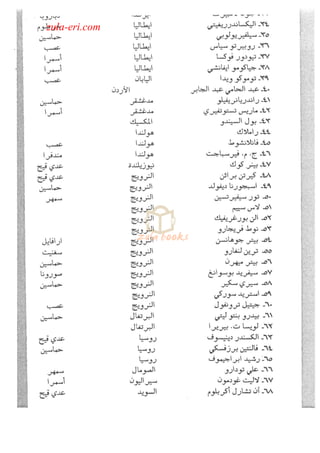 ٣٤. اليكساندررريغيني ايطاليا
٣٥. سيلفيريولوبي ايطاليا حماسين
٣٦. روبرتو سياس ايطاليا عصب
٣٧. تيودور فوكسا ايطاليا أسمرا
٣٨. جياكومو ايفانشي ايطاليا أسمرا
٣٩. توموكو ويدا اليابان عصب
٤٠. عبد الحامي عبد الجابر الأردن
٤١. راندريانريفيلو مدغشقر حماسين
٤٢. ماريس تستوتفيري مدغشقر أسمرا
٤٣. بول السيندو المكسيك
٤٤. راملاك هولندا
٤٥. فانلانشوط هولندا عصب
٤٦. ج. م. فيرسباجت هولندا مندفرا
٤٧. بيتر كوك نيوزيلندة عدي قيح
٤٨. كيرتن براتن النرويج عدي قيح
٤٩. اسبجورنا ديفولد النرويج حماسين
٥٠. تور سيفيرتسين النرويج سمهر
٥١. لاس سيم النرويج
٥٢. الن بورغريفيك النرويج
٥٣. نوط فريجارو النرويج
٥٤. بيتر جوهانسن النرويج ارافايل
٥٥. ترين لنغارو النرويج سغنيت
٥٦. بيتر ميهرن النرويج حماسين
٥٧. سيفريد بوسوانغ النرويج صورونا
٥٨. سيري سكير النرويج حماسين
٥٩. استريد سوركي النرويج
٦٠. جيتيل ترونفول النرويج عصب
٦١. بيدرو بنتو ليتي البرتغال حماسين
٦٢. لويسا ت. بيريرا البرتغال
٦٣. الكسندر دينيسوف روسيا عدي قيح
٦٤. فالنتين برزفسكي روسيا حماسين
٦٥. رشيد ابراجيموف روسيا
٦٦. علي تودارو الصومال سمهر
٦٧. لاليت غودمون سيراليون أسمرا
٦٨. أن تشارل أكربلوم السويد عدي قيح